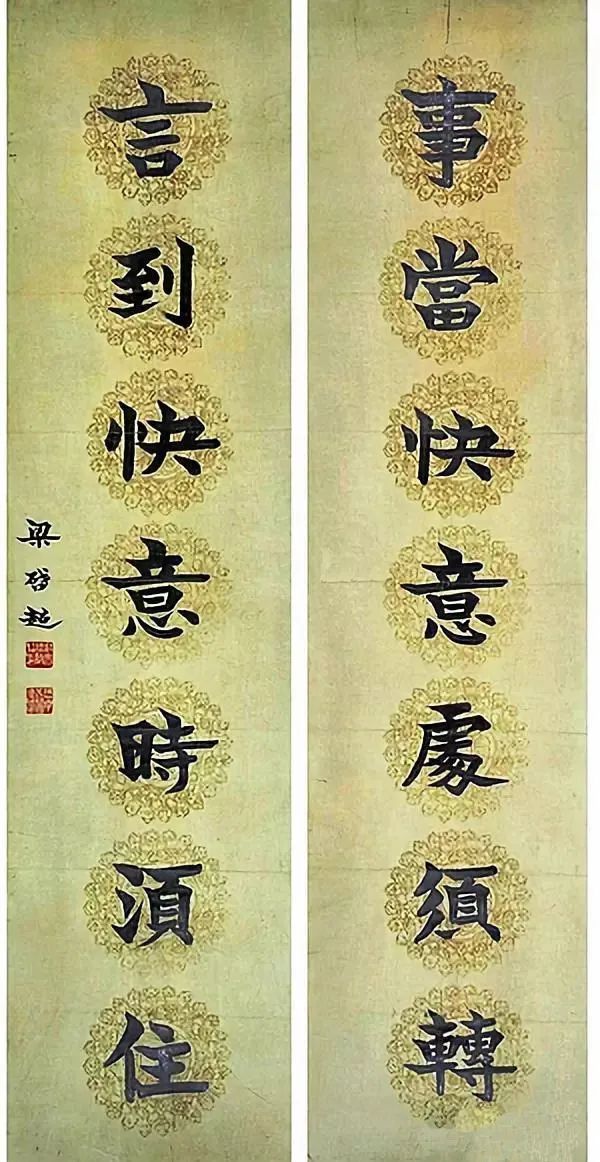 事當快意處須轉
言到快意時湏住
梁啓超